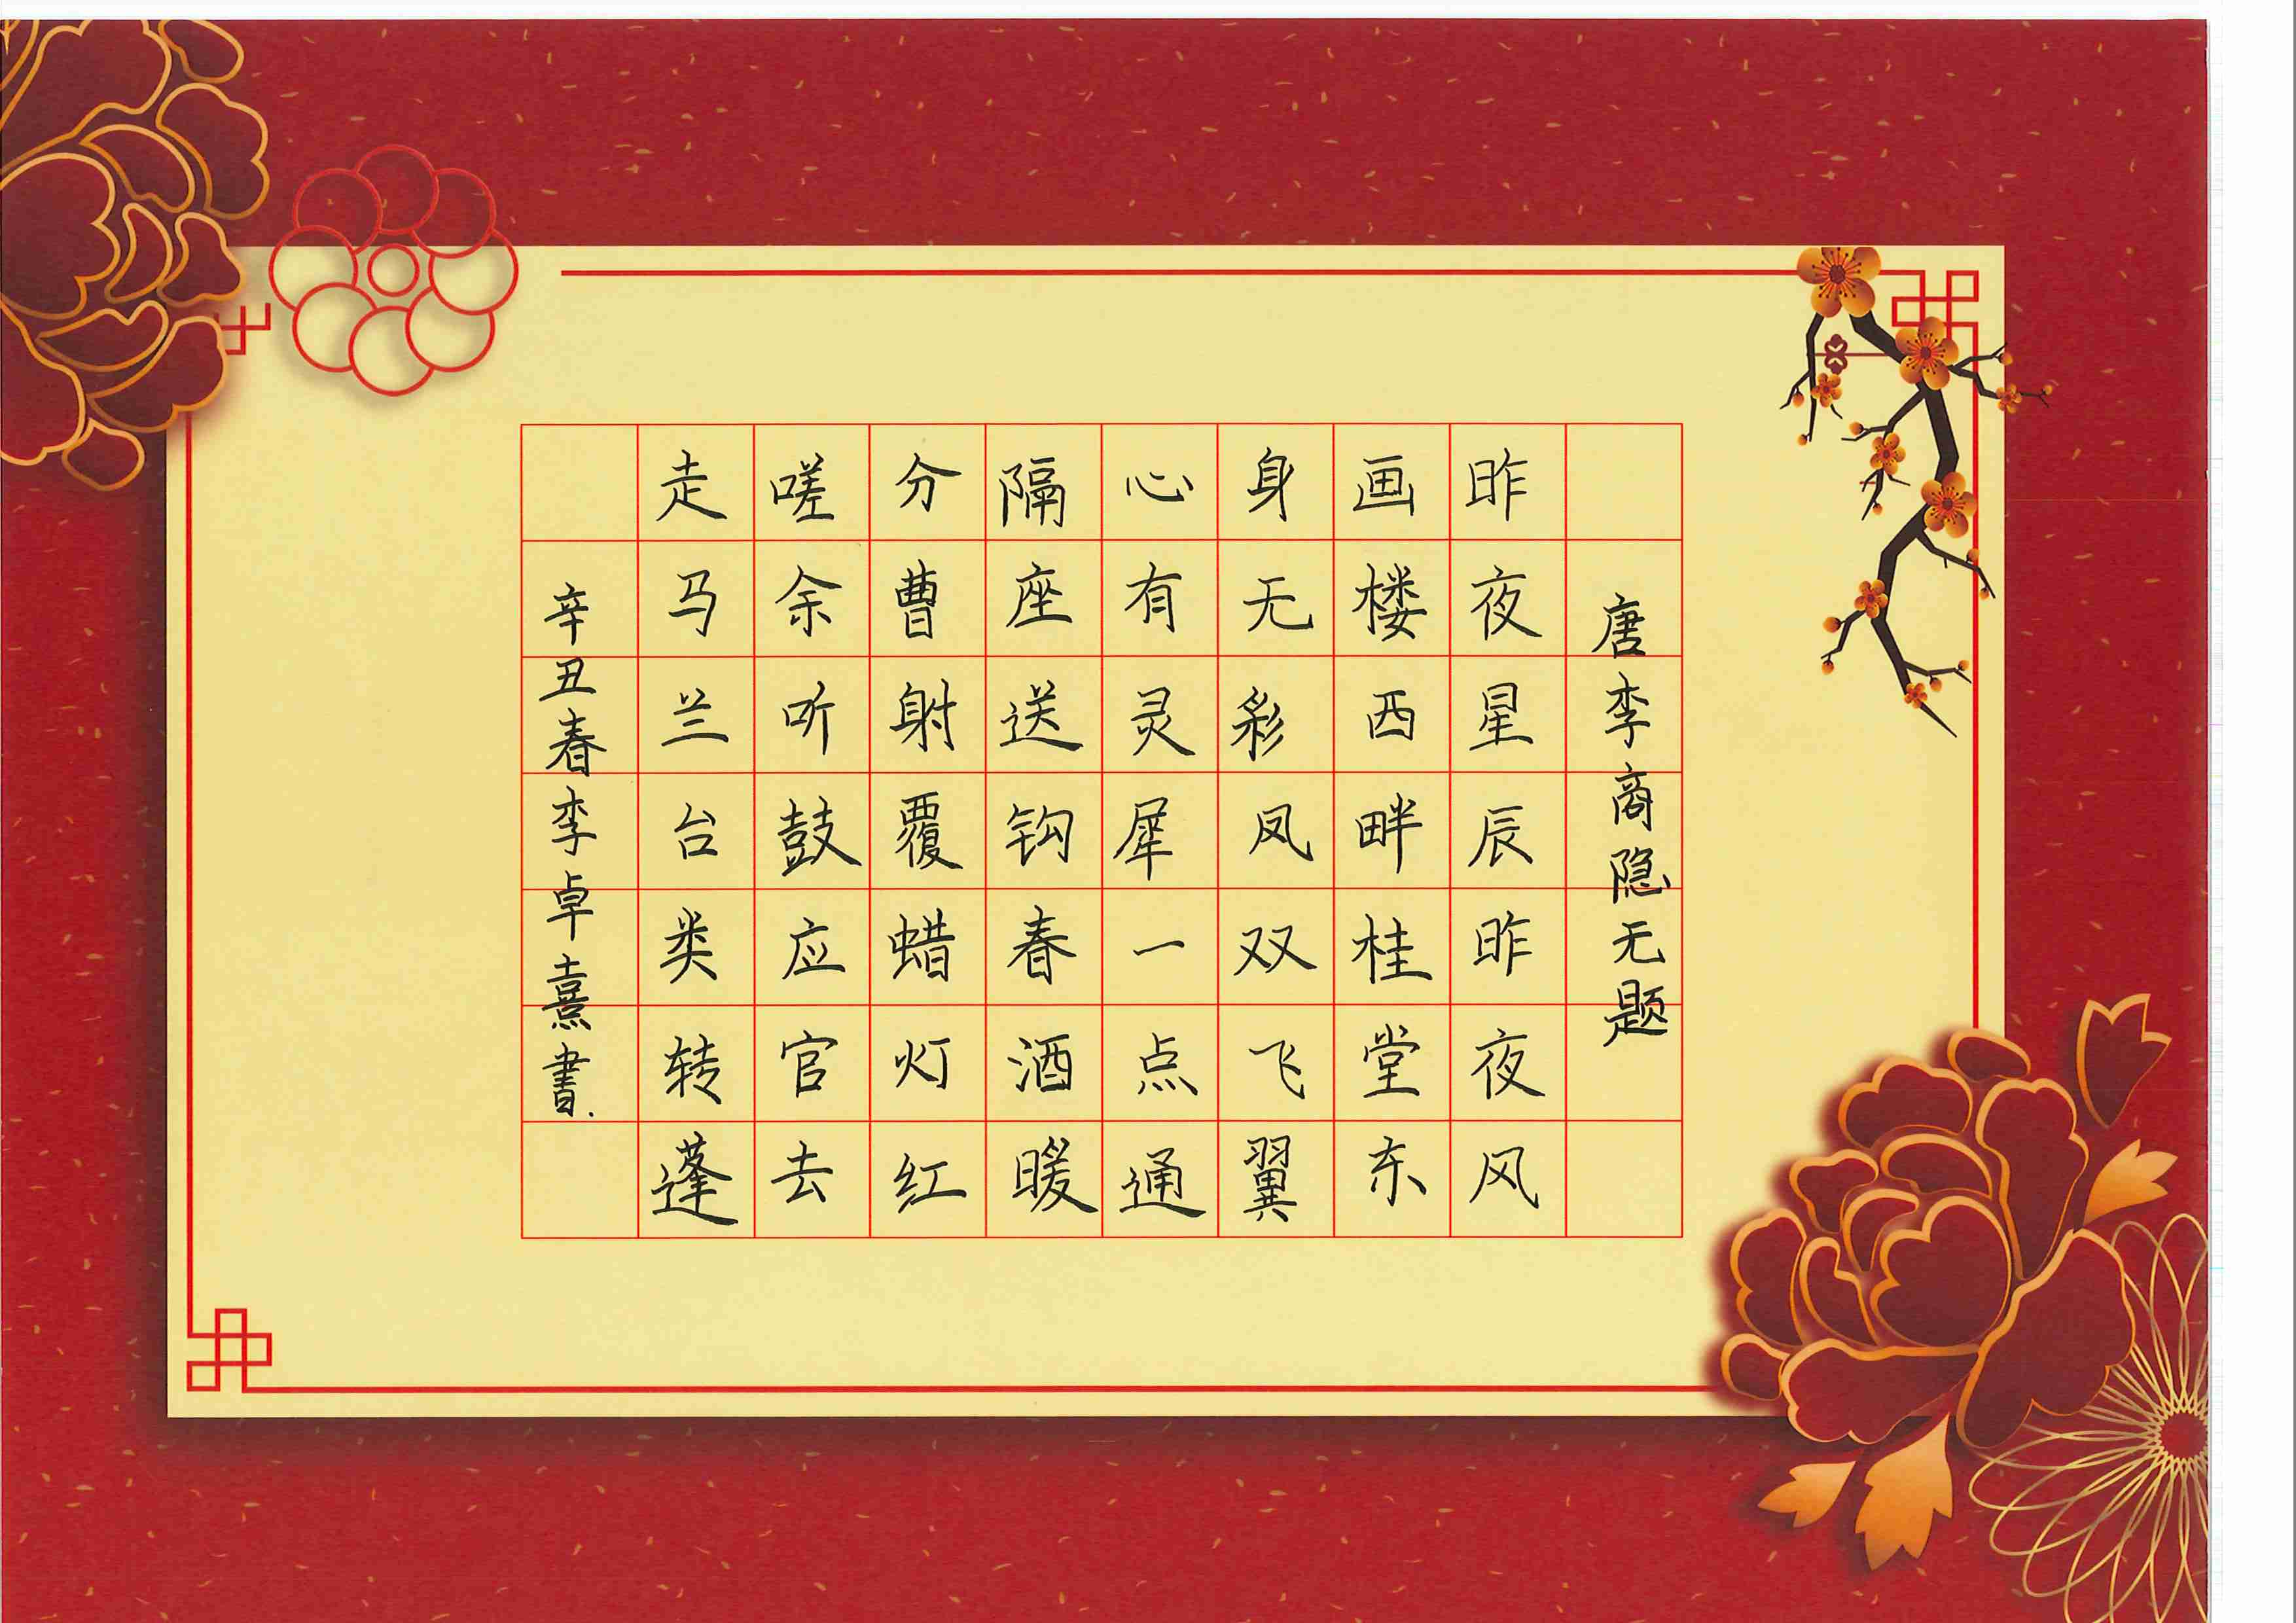 唐李商隐无题
昨夜星辰昨夜风
画楼西畔桂堂东
身无彩凤双飞翼
心有灵犀一点通
隔座送钩春酒暖
分曹射覆蜡灯红
嗟余听鼓应官去
走马兰台类转蓬
辛丑春李卓熹書.